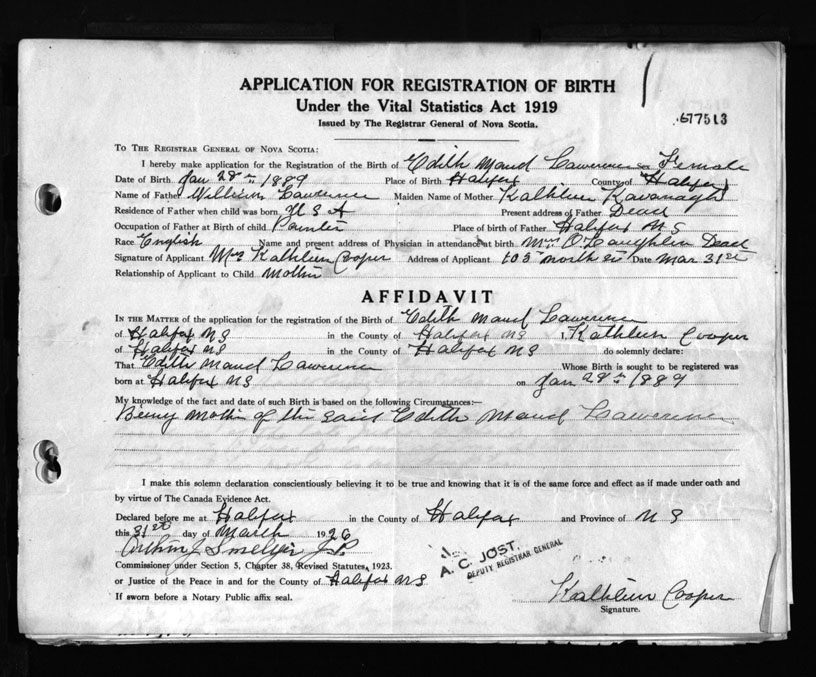 APPLICATION FOR REGISTRATION OF BIRTH
Under the Vital Statistics Act 1919
Issued by The Registrar General of Nova Scotia.
677513
TO THE REGISTRAR GENERAL OF NOVA SCOTIA:
I hereby make application for the Registration of the Birth of Edith Maud Lawrence Female
Date of Birth Jan 28th 1889 Place of Birth Halifax County of Halifax
Name of Father William Lawrence Maiden Name of Mother Kathleen Kavanagh
Residence of Father when child was born U S A Present address of Father Dead
Occupation of Father at Birth of child Painter Place of birth of Father Halifax N S
Race English Name and present address of Physician in attendance at birth Mrs O'Laughlen Dead
Signature of Applicant Mrs Kathleen Cooper Address of Applicant 103 North St Date Mar 31st
Relationship of Applicant to Child Mother
AFFIDAVIT
IN THE MATTER of the application for the registration of the Birth of Edith Maud Lawrence
of Halifax N S in the County of Halifax N S I, Kathleen Cooper
of Halifax N S in the County of Halifax N S do solemnly declare:
That Edith Maud Lawrence Whose Birth is sought to be registered was
born at Halifax N S on Jan 28th 1889
My knowledge of the fact and date of such Birth is based on the following Circumstances:—
Being Mother of the said Edith Maud Lawrence
I make this solemn declaration conscientiously believing it to be true and knowing that it is of the same force and effect as if made under oath and
by virtue of The Canada Evidence Act.
Declared before me at Halifax in the County of Halifax and Province of N S
this 31st day of March 1926
J.P.
Commissioner under Section 5, Chapter 38, Revised Statutes, 1923.
or Justice of the Peace in and for the County of Halifax N S
If sworn before a Notary Public affix seal.
A. C. JOST,
DEPUTY REGISTRAR GENERAL
Kathleen Cooper
Signature.